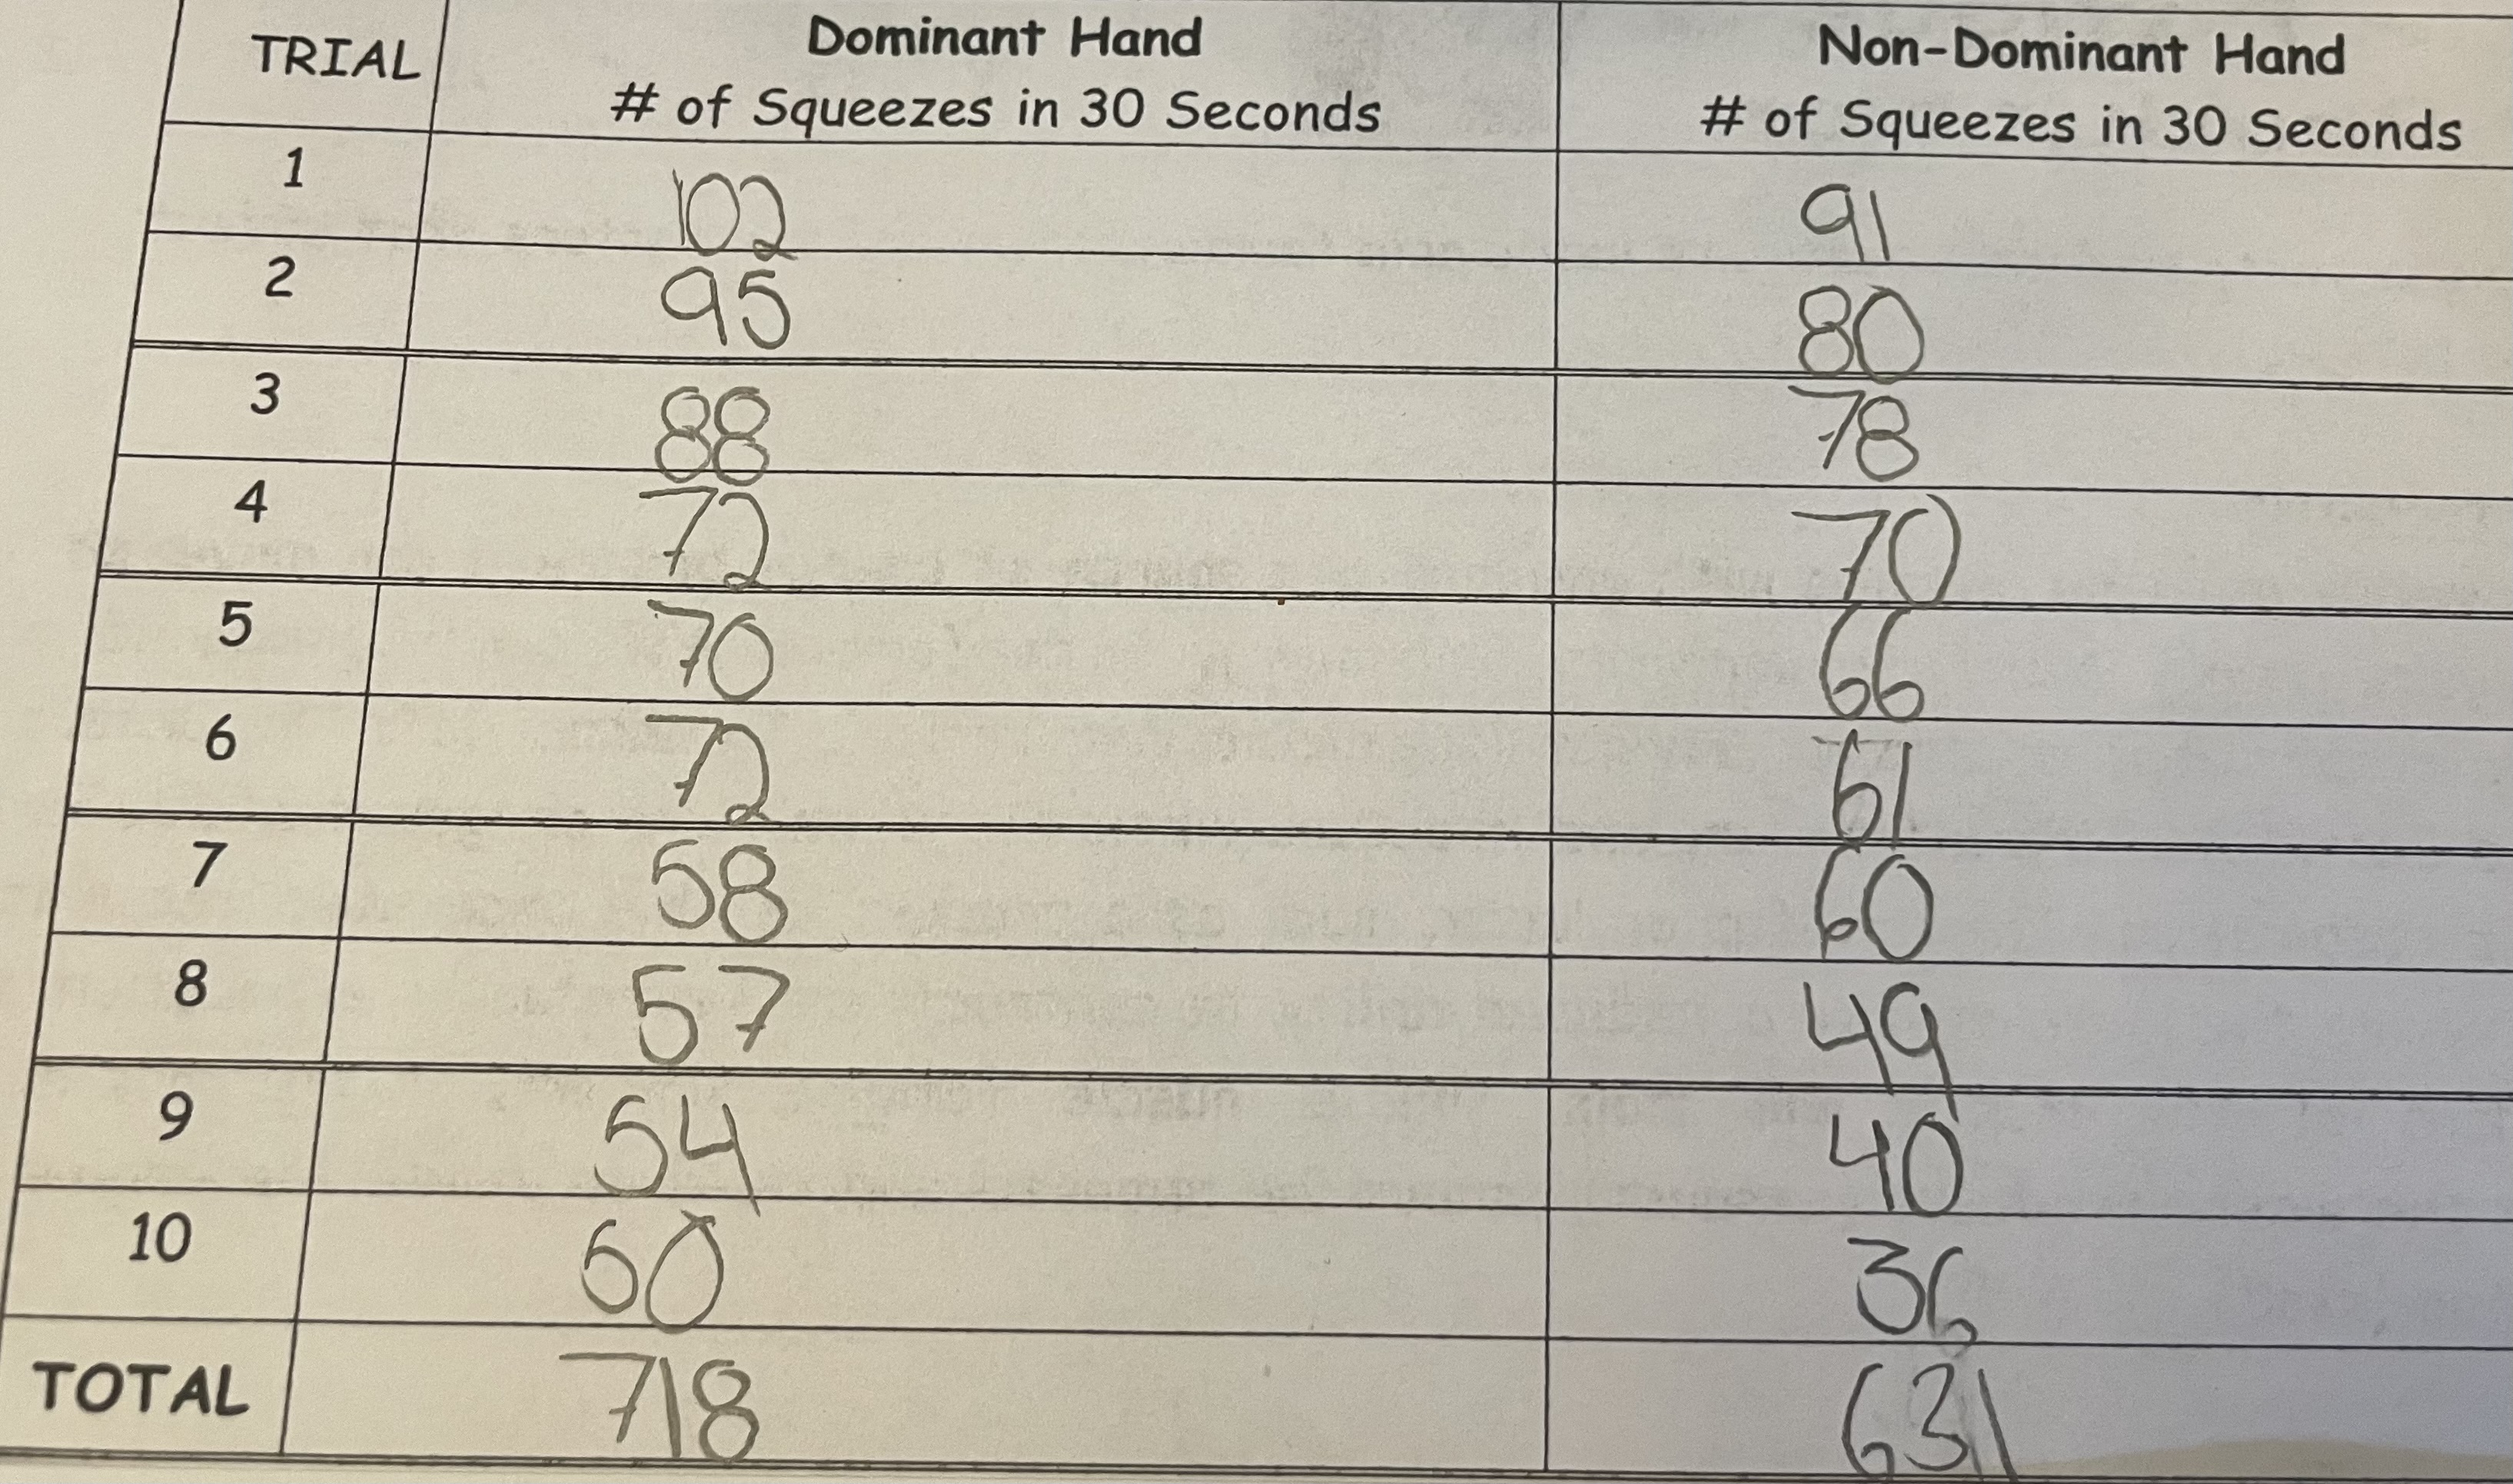 TRIAL Dominant Hand # of Squeezes in 30 Seconds Non-Dominant Hand # of Squeezes in 30 Seconds
1 102 91
2 95 80
3 88 78
4 72 70
5 70 66
6 72 61
7 58 60
8 57 49
9 54 40
10 60 36
TOTAL 718 631